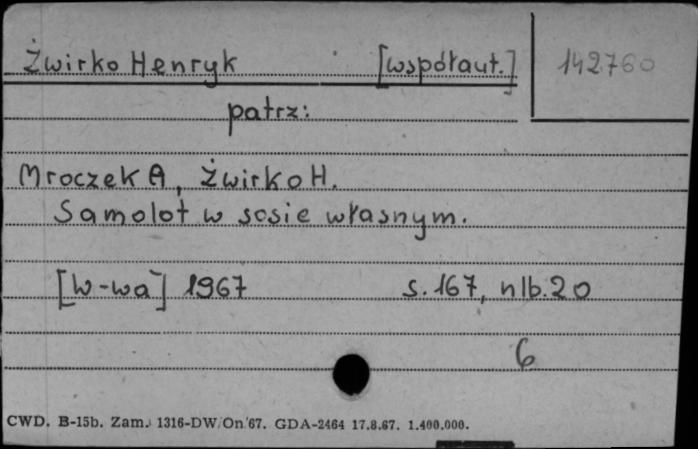 Żwirko Henryk [współaut.] 142760
patrz:
Mroczek A, Żwirko H.
Samolot w sosie własnym.
[W-wa] 1967 s. 167, nlb. 20
6
CWD. B-15b. Zam. 1316-DW/On/67. GDA-2464 17.8.67. 1.400.000.